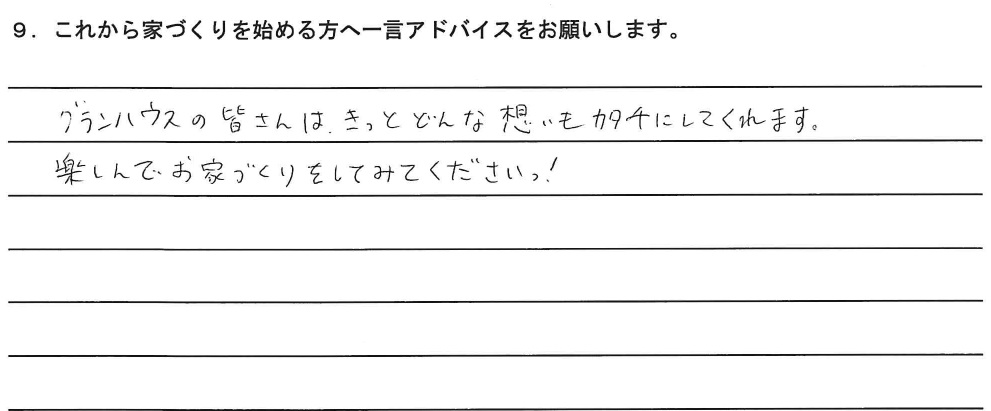 9. これから家づくりを始める方へ一言アドバイスをお願いします。
グランハウスの皆さんは、きっとどんな想いもカタチにしてくれます。
楽しんでお家づくりをしてみてくださいっ!